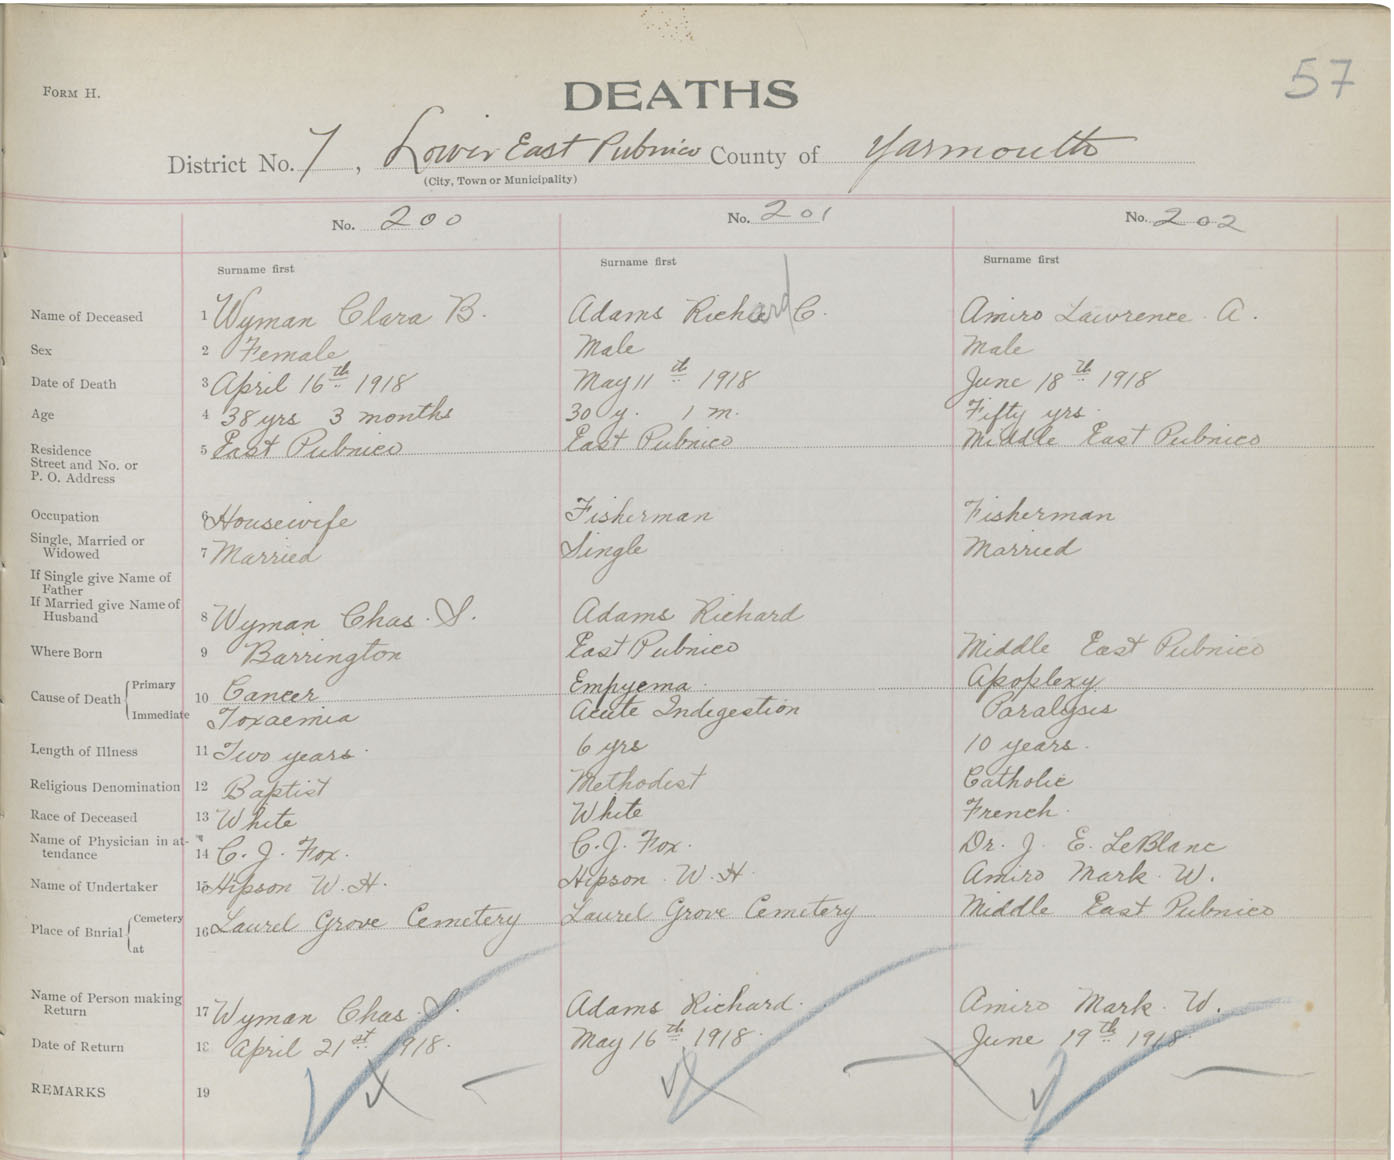 57
FORM H.
DEATHS
District No. 7, Lower East Pubnico County of Yarmouth
(City, Town or Municipality)
No. 200 No. 201 No. 202
Surname first Surname first Surname first
Name of Deceased 1 Wyman Clara B. Adams Richard C. Amiro Lawrence A.
Sex 2 Female Male Male
Date of Death 3 April 16th 1918 May 11th 1918 June 18th 1918
Age 4 38 yrs 3 months 30 y. 1 m. Fifty yrs.
Residence Street and No. or P. O. Address 5 East Pubnico East Pubnico Middle East Pubnico
Occupation 6 Housewife Fisherman Fisherman
Single, Married or Widowed 7 Married Single Married
If Single give Name of Father
If Married give Name of Husband 8 Wyman Chas. S. Adams Richard
Where Born 9 Barrington East Pubnico Middle East Pubnico
Cause of Death Primary 10 Cancer Empyema Apoplexy
Immediate Toxaemia Acute Indigestion Paralysis
Length of Illness 11 Two years 6 yrs 10 years.
Religious Denomination 12 Baptist Methodist Catholic
Race of Deceased 13 White White French
Name of Physician in attendance 14 C. J. Fox. C. J. Fox. Dr. J. E. LeBlanc
Name of Undertaker 15 Hipson W. H. Hipson W. H. Amiro Mark W.
Place of Burial Cemetery at 16 Laurel Grove Cemetery Laurel Grove Cemetery Middle East Pubnico
Name of Person making Return 17 Wyman Chas. S. Adams Richard. Amiro Mark W.
Date of Return 18 April 21st 1918. May 16th 1918. June 19th 1918.
REMARKS 19